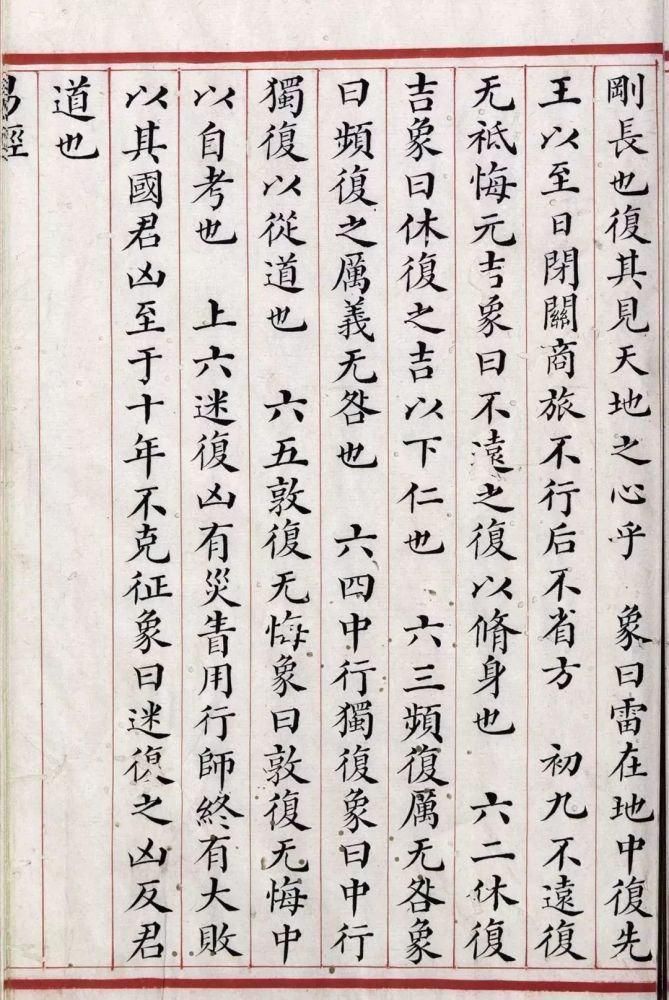 剛長也復其見天地之心乎　象曰雷在地中復先
王以至日閉關商旅不行后不省方　初九不遠復
无祗悔元吉象曰不遠之復以脩身也　六二休復
吉象曰休復之吉以下仁也　六三頻復厲无咎象
曰頻復之厲義无咎也　六四中行獨復象曰中行
獨復以從道也　六五敦復无悔象曰敦復无悔中
以自考也　上六迷復凶有災眚用行師終有大敗
以其國君凶至于十年不克征象曰迷復之凶反君
道也
易經